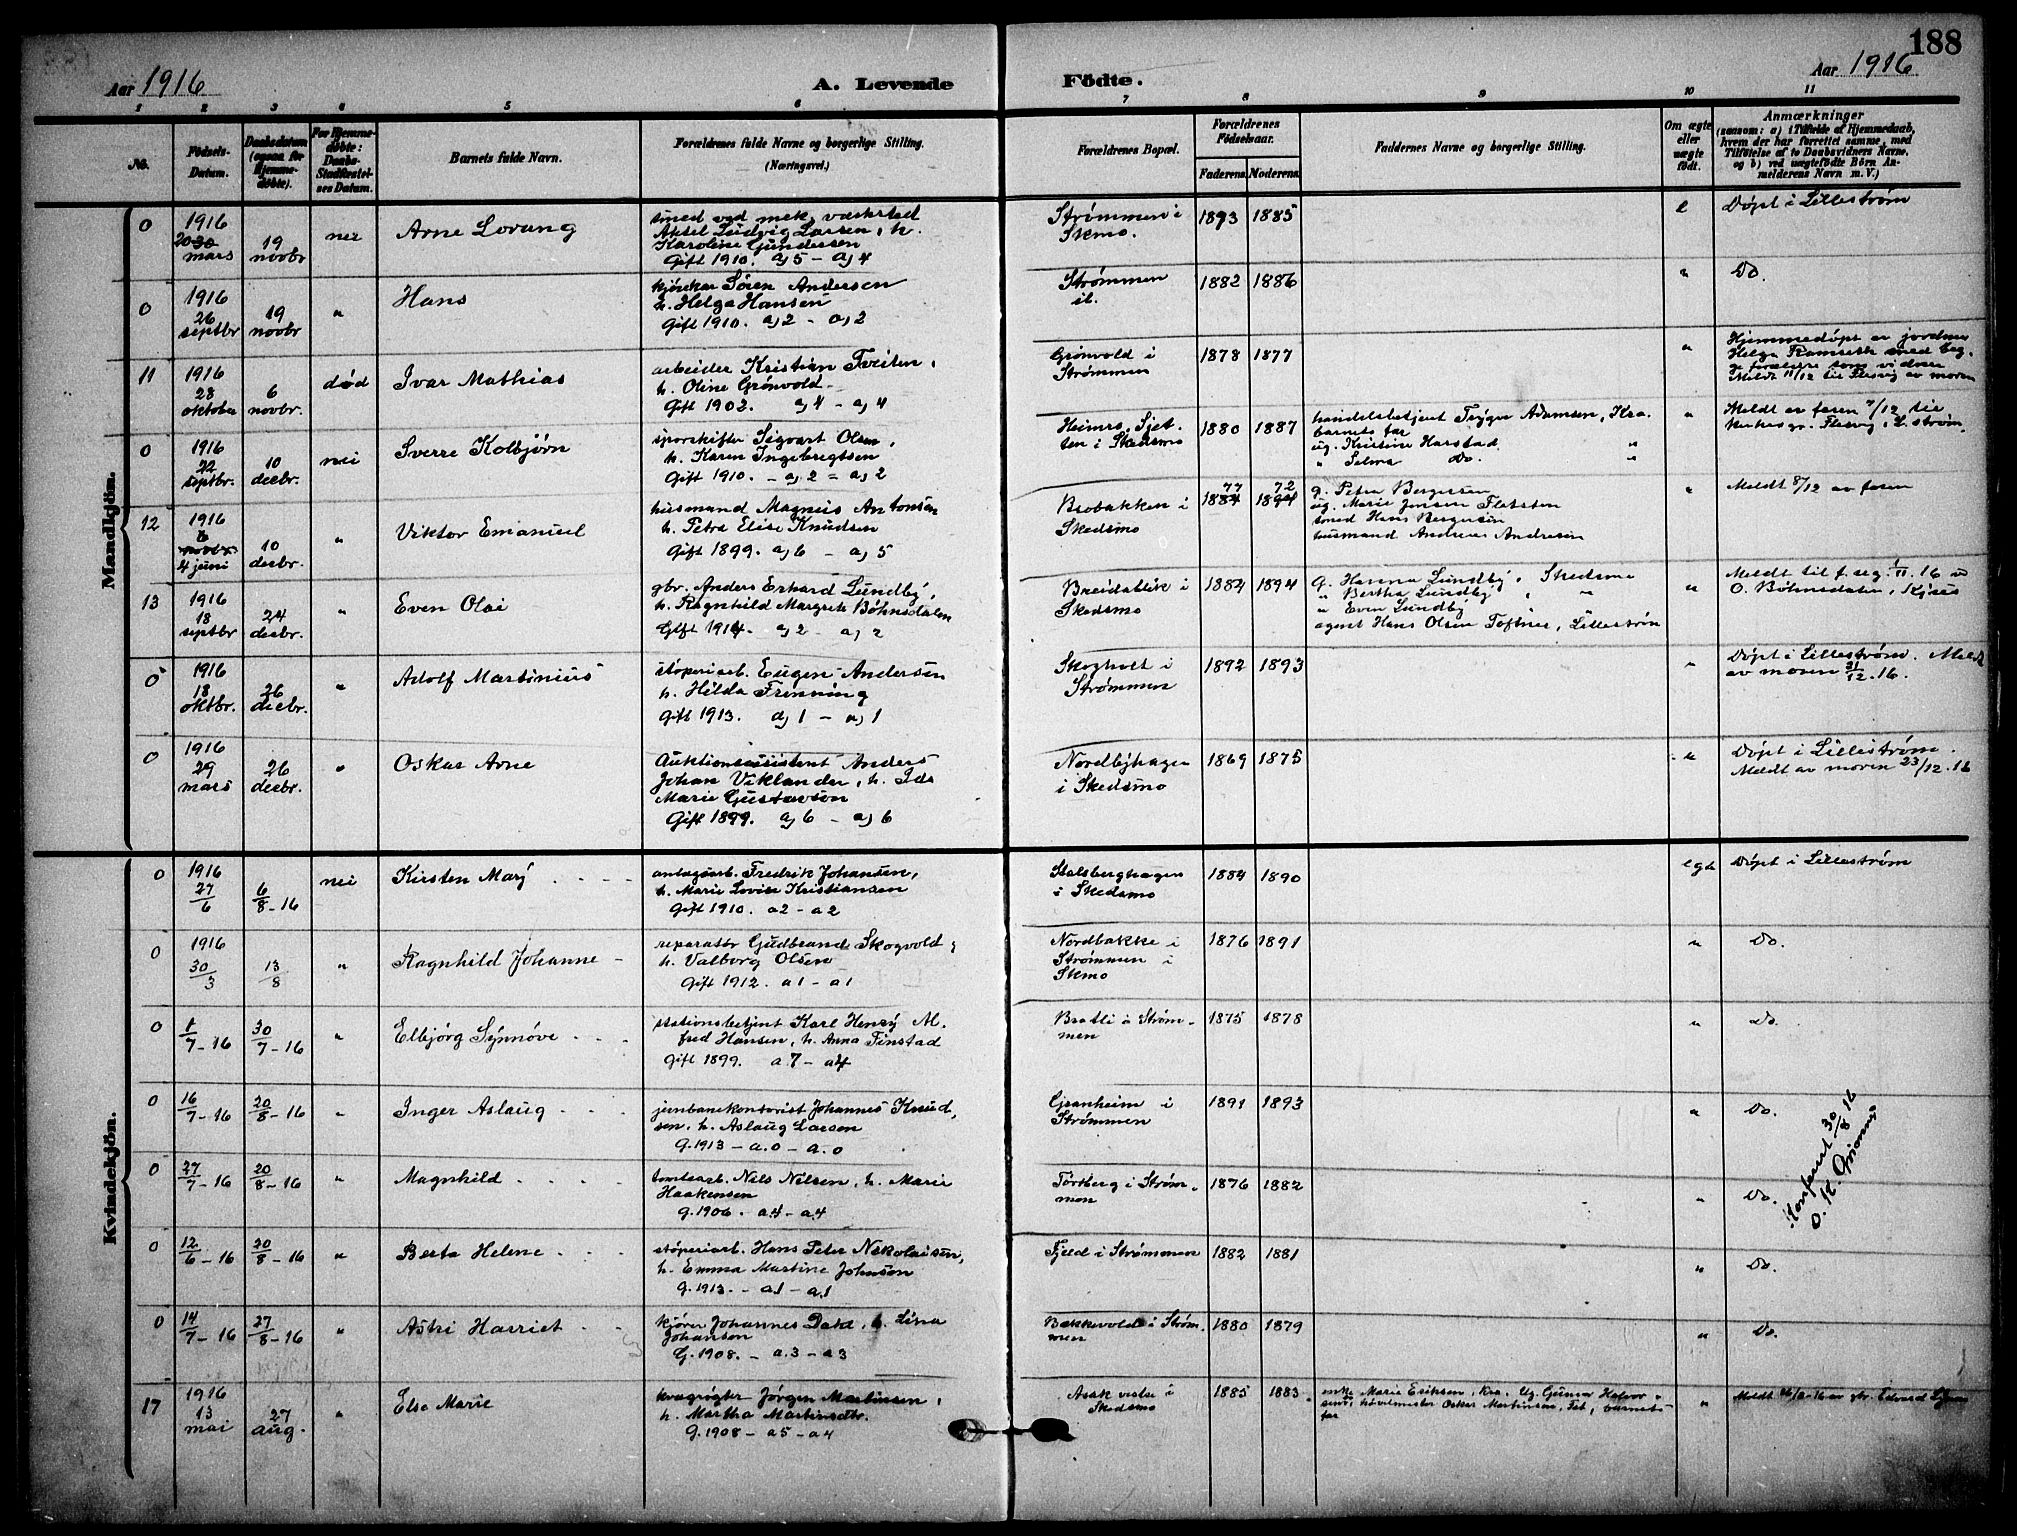 188
Aar 1916
A. Levende
Födte.
Aar 1916
1 2 3 4 5 6 7 8 9 10 11
No.
Födsels-Datum.
Daabsdatum (ogsaa for Hjemmedöbte).
For Hjemmedöbte: Daabs-Stadfæstelses Datum.
Barnets fulde Navn.
Forældrenes fulde Navne og borgerlige Stilling.
(Næringsvei.)
Forældrenes Bopæl.
Forældrenes Födselsaar.
Faderens. Moderens.
Faddernes Navne og borgerlige Stilling.
Om ægte eller uægte födt.
Anmærkninger
(saasom: a) i Tilfælde af Hjemmedaab, hvem der har forrettet samme, med Tilföielse af to Daabsvidners Navne, og b) ved uægtefödte Börn Anmelderens Navn m. V.)
Mandkjön.
0 1916 20 30 mars 19 novbr nei Arne Lorang
smed ved mek. værksted
Aksel Ludvig Larsen, h.
Karoline Gundersen
Gift 1910. a) 5 - a) 4
Strømmen i
Skmo.
1893 1885 e Døpt i Lillestrøm
0 1916 26 septbr 19 novbr " Hans
kjørekar Søren Andersen
h. Helga Hansen
Gift 1910. a) 2 - a) 2
Strømmen
ib.
1882 1886 " Do.
11 1916 28 oktober 6 novbr. død Ivar Mathias
arbeider Kristian Tveiten,
h. Oline Grønvold
Gift 1902. a) 4 - a) 4
Grønvold i
Strømmen
1878 1877 "
Hjemmedøpt av jordmor
Helga Ramseth med beg-
ge forældre som vidner
Meldt 11/12 til Flesvig av moren
0 1916 22 septbr. 10 decbr. nei Sverre Kolbjørn
sporskifter Sigvart Olsen,
h. Karen Ingebrigtsen
Gift 1910. - a) 2 = a) 2
Heimro, Sjet-
ten i Skedsmo
1880 1887
handelsbetjent Trygve Adamsen, Kra.
barnets far
ug. Kristine Harstad "
" Selma Do. "
" Meldt av faren 7/12 til
kirkesgr. Flesvig, L.strøm.
12 1916 6 novbr. 4 juni 10 decbr. " Viktor Emanuel
husmand Magnus Antonsen
h. Petra Elise Knudsen
Gift 1899. a) 6 - a) 5
Brobakken i
Skedsmo
77 72
1884 1894
g. Peter Bergersen
ug. Marie Jensen Flatsten
smed Hans Bergersen
husmand Andreas Andresen
" Meldt 8/12 av faren
13 1916 18 septbr 24 decbr. " Even Olai
gbr. Anders Erhard Lundby,
h. Ragnhild Margrete Bøhnsdalen
Gift 1914. - a) 2 - a) 2
Breidablik i
Skedsmo
1884 1894
g. Hanna Lundby, Skedsmo
" Bertha Lundby, "
" Even Lundby
agent Hans Olsen Toftner, Lillestrøm
" Meldt til f. seg. 1/11. 16 v
O. Bøhnsdalen, Kjøus
0 1916 18 oktbr. 26 decbr. " Adolf Martinius
støperiarb. Eugen Andersen
h. Hilda Frenning
Gift 1913. a) 1 - a) 1
Skogholt i
Strømmen
1892 1893 "
Døpt i Lillestrøm. Meldt
av moren 21/12. 16.
0 1916 29 mars 26 decbr. " Oskar Arne
Auktionsassistent Anders
Johan Viklander, h. Ida
Marie Gustavson
Gift 1899. a) 6 - a) 6
Nordbyhagen
i Skedsmo
1869 1875 "
Døpt i Lillestrøm.
Meldt av moren 23/12. 16
Kvindekjön.
0 1916 27/6 6/8 - 16 nei Kirsten Mary
anlægsarb. Fredrik Johansen,
h. Marie Lovise Kristiansen
Gift 1910. a 2 - a 2
Stalsberghagen
i Skedsmo
1884 1890 egte Døpt i Lillestrøm
0 1916 30/3 13/8 " Ragnhild Johanne
reparatør Gudbrand Skogvold,
h. Valborg Olsen
Gift 1912. a 1 - a 1
Nordbakke i
Strømmen i
Skmo
1876 1891 " Do.
0 1/7 - 16 30/7 - 16 " Elbjørg Synnøve
stationsbetjent Karl Henry Al-
fred Hansen, h. Anna Finstad
Gift 1899. a. 7 - a4
Bratli i Strøm-
men
1875 1878 " Do.
0 16/7 - 16 20/8 - 16 " Inger Aslaug
jernbanekontorist Johannes Knud-
sen, h. Aslaug Larsen
G. 1913 - a. 0 - a. 0
Granheim i
Strømmen
1891 1893 " Do.
0 27/7 - 16 20/8 - 16 " Magnhild
tomtearb. Nils Nilsen, h. Marie
Haakensen
g. 1906. - a.4 - a.4
Torsberg i Strøm-
men
1876 1882 " Do.
Konferert 30/8 16
O. K. Grjonnes
0 12/6 - 16 20/8 - 16 " Berta Helene
støperiarb. Hans Peter Nikolaisen,
h. Emma Martine Johnsen
G. 1913. - a.1 - a.1
Fjeld i Strømmen 1882 1881 " Do.
0 14/7 - 16 27/8 - 16 " Astri Harriet
kjører Johannes Dahl, h. Lina
Johansen
G. 1908. - a. 3 - a 3
Bakkevold i Strøm-
men
1880 1879 " Do.
17 1916 13 mai 27 aug. " Else Marie
kvægrøgter Jørgen Martinsen,
h. Martha Martinsdtr.
G. 1908 - a 5 - a 4
Asak vestre i
Skedsmo
1885 1883
enke Marie Eriksen, Kra. Ug. Gunnar Halvor-
sen, hovelmester Oskar Martinsen, Fet, barnets
far
" Meldt av gbr. Edvard